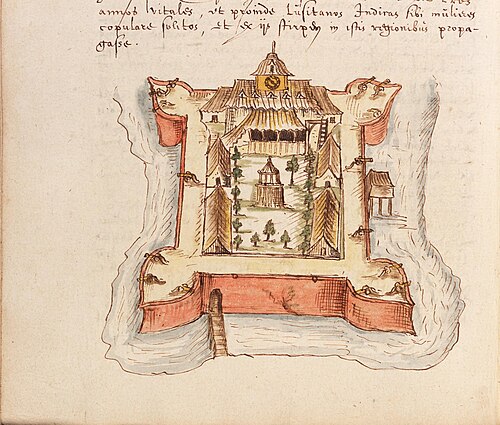 annos vitales, et proinde Lusitanos Indiras sibi mulieres
copulare solitos, et ex ijs stirpem in istis regionibus propa-
gasse.